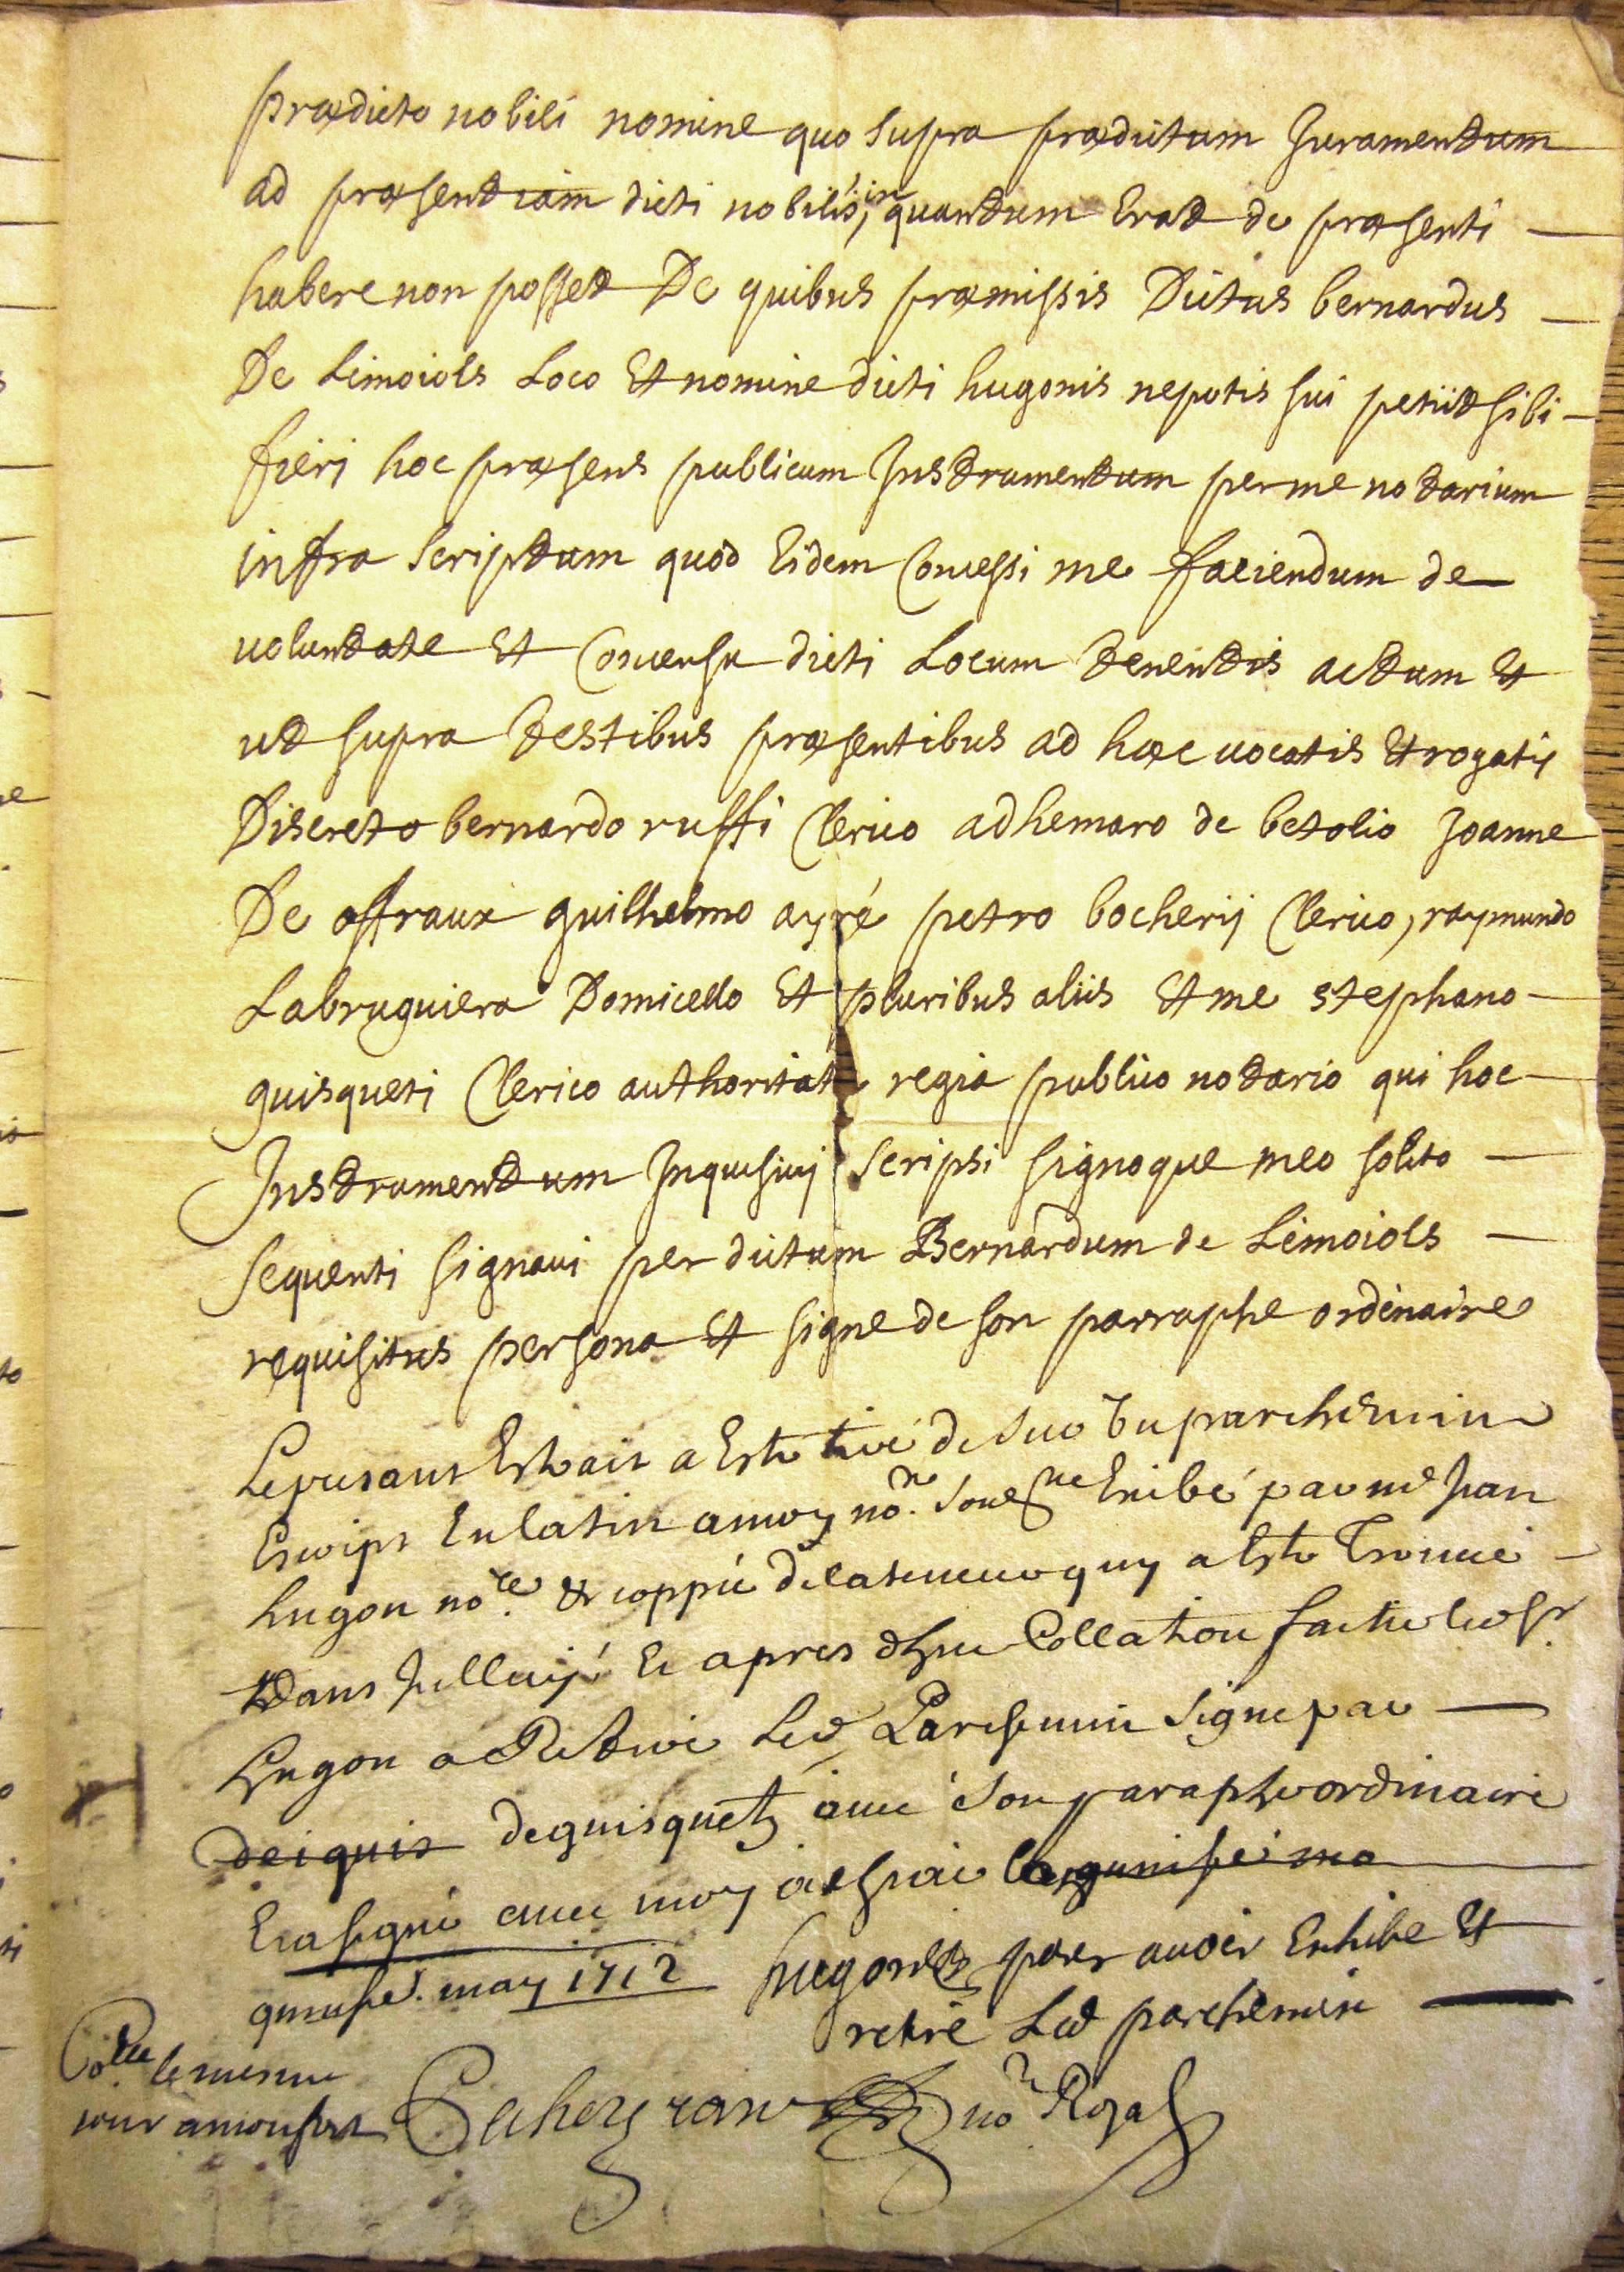 prædicto nobili nomine quo supra prædictum Juramentum
ad præsentiam dicti nobilis, in quantum Erat de præsenti
habere non posset De quibus præmissis Dictus bernardus
De Limoiols Loco Et nomine dicti hugonis nepotis sui petiit sibi
fieri hoc præsens publicum Instrumentum per me notarium
infra scriptum quod Eidem Concessi me faciendum de
voluntate Et Consensu dicti Locum tenentis actum Et
ut supra testibus præsentibus ad hæc vocatis Et rogatis
Discreto bernardo ruffi Clerico adhemaro de betolio Joanne
De affraux guilhelmo ayré petro bocherij Clerico, raymundo
Labruguiera Domicello Et pluribus aliis Et me stephano
guisqueti Clerico authoritate regia publico notario qui hoc
Instrumentum Inquisivj scripsi signoque meo solito
sequenti signavi per dictum Bernardum de Limoiols
requisitus persona Et signe de son parraphe ordinaire
Le presant Extrait a Esté tiré de sur Un parchemin
Escript En latin a moy no.re Exibé par me Jean
hugon no.re & coppié de la teneur quy a Esté Trouvé
Dans Jcelluy Et apres dhue Collation faite led sr
hugon a Retiré Led Parchemin signe par
deiguis deguisquetz avec son paraphe ordinaire
Et a signé avec moy
quinsie. may 1712 hugon pour avoir Exhibe Et
retiré Led parchemin
Co.lle le mesme
jour a monfort
no.re Royal